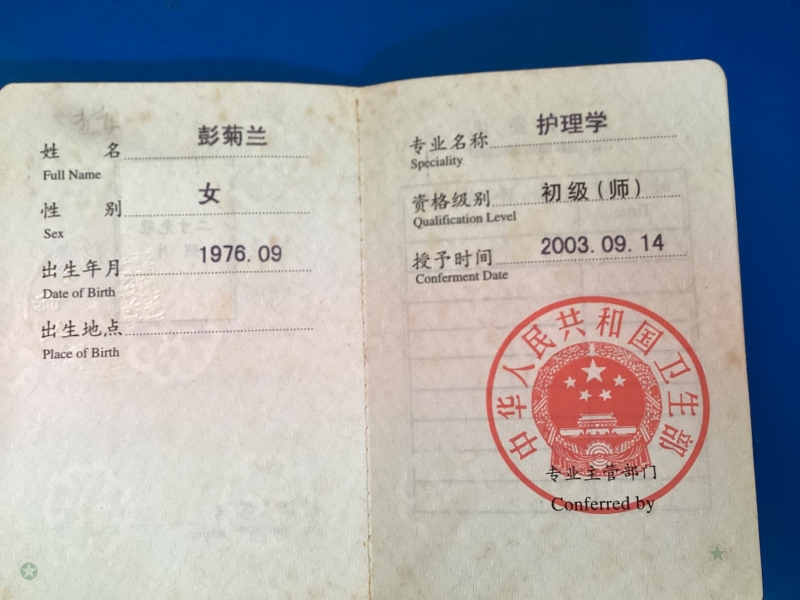 姓 名 彭菊兰
Full Name
性 别 女
Sex
出生年月 1976.09
Date of Birth
出生地点
Place of Birth
专业名称 护理学
Speciality
资格级别 初级(师)
Qualification Level
授予时间 2003.09.14
Conferment Date
中华人民共和国卫生部
专业主管部门
Conferred by